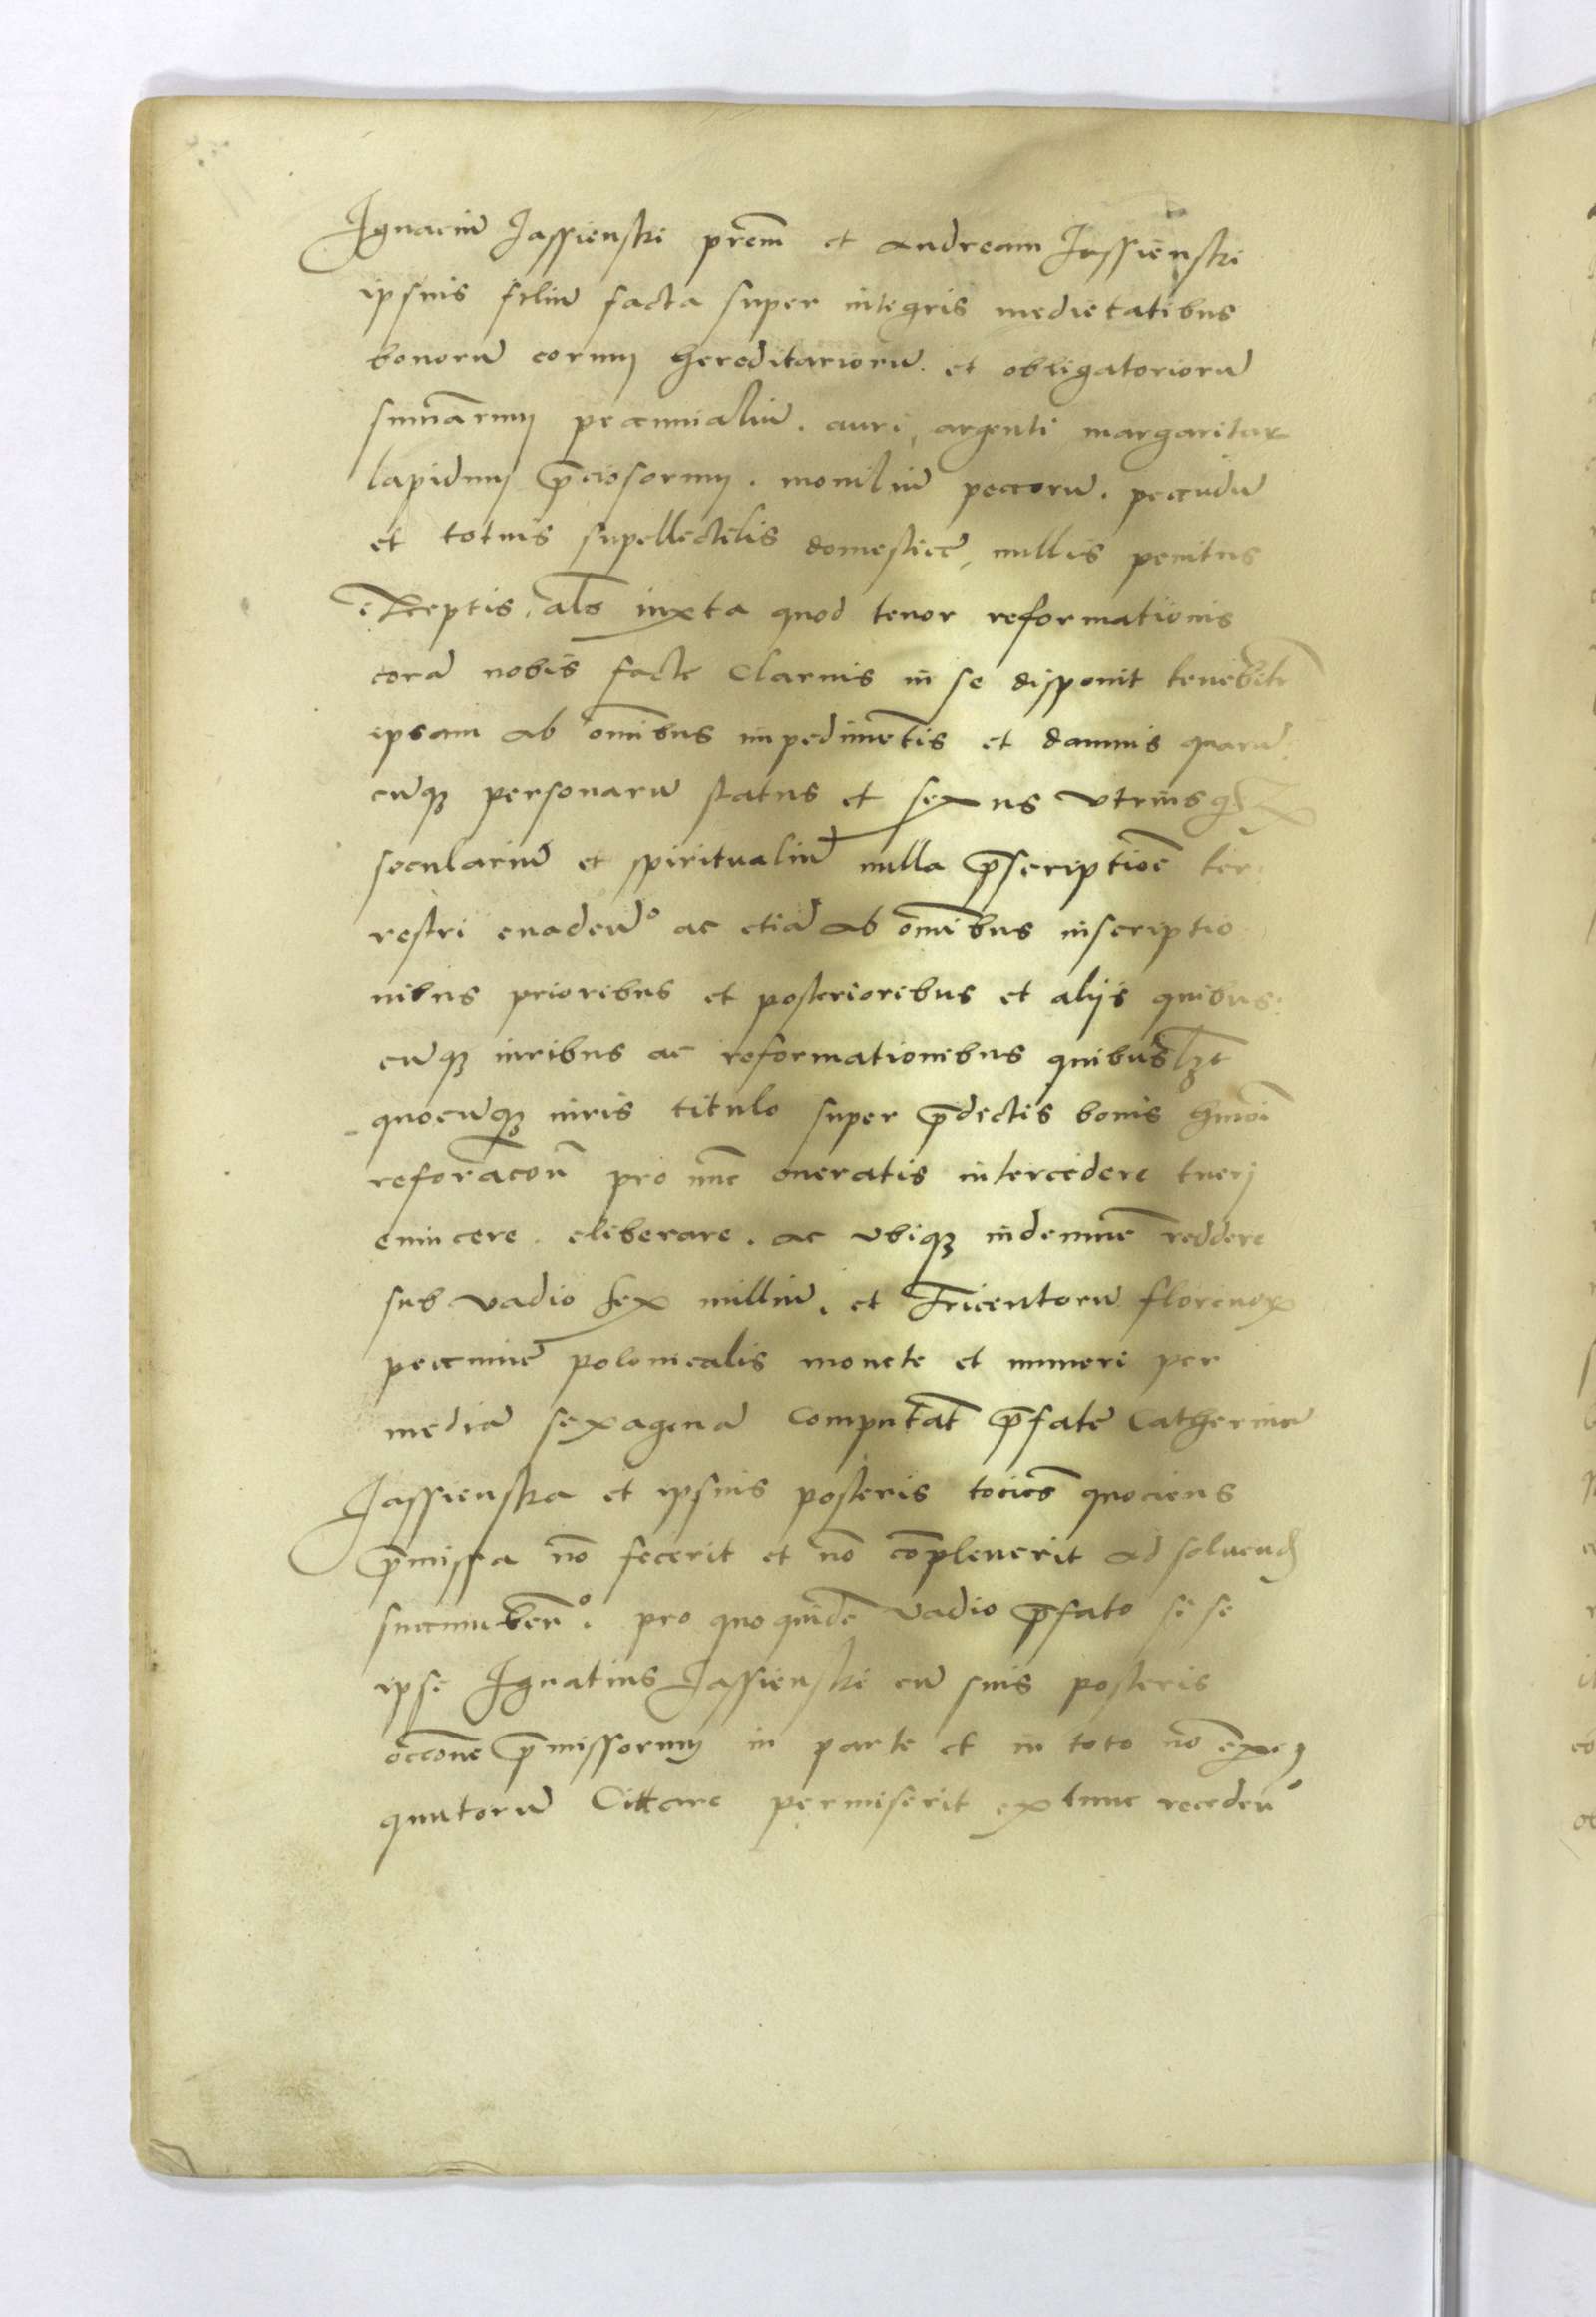 Ignaciũ Jassienski prẽm et Andream Jassienski
ipsius filiũ facta super integris medietatibus
bonorũ eorum hereditariorũ et obligatoriorũ
sum̃arum pecunialiũ. auri, argenti margaritar
lapidum p̃ciosorum. moniliũ peccorũ. peccudũ
et totius supellectilis domesticę, nullis penitus
exceptis, als̃ iuxta quod tenor reformationis
corã nobis facte clarius in se disponit tenebit̃
ipsam ab om̃ibus impedimẽtis et damnis quarũ
cũqȝ personarũ status et sexus vtriusqȝ
seculariũ et spiritualiũ nulla p̃scriptiõe ter
restri euadeñº ac etiã ab om̃ibus inscriptio
nibus prioribus et posterioribus et alijs quibus
cũqȝ iuribus ac reformationibus quibuslȝt
quocũqȝ iuris titulo super p̃dictis bonis hmõi
reforãcoñ pro nũc oneratis intercedere tueri
euincere. eliberare. ac vbiqȝ indemnẽ reddere
sub vadio sex milliũ. et Tricentorũ florenoꝝ
peccunie polonicalis monete et numeri per
mediã sexagenã computat̃ p̃fate Catherine
Jassienska et ipsius posteris tocies̃ quociens
p̃missa nõ fecerit et nõ cõpleuerit ad soluend
succumbeñº. pro quo quidẽ vadio p̃fato se se
ipse Ignatius Jassienski cũ suis posteris
occõne p̃missorum in parte et in toto nõ exe
quutorũ Cittare permiserit ex tunc recedeñ